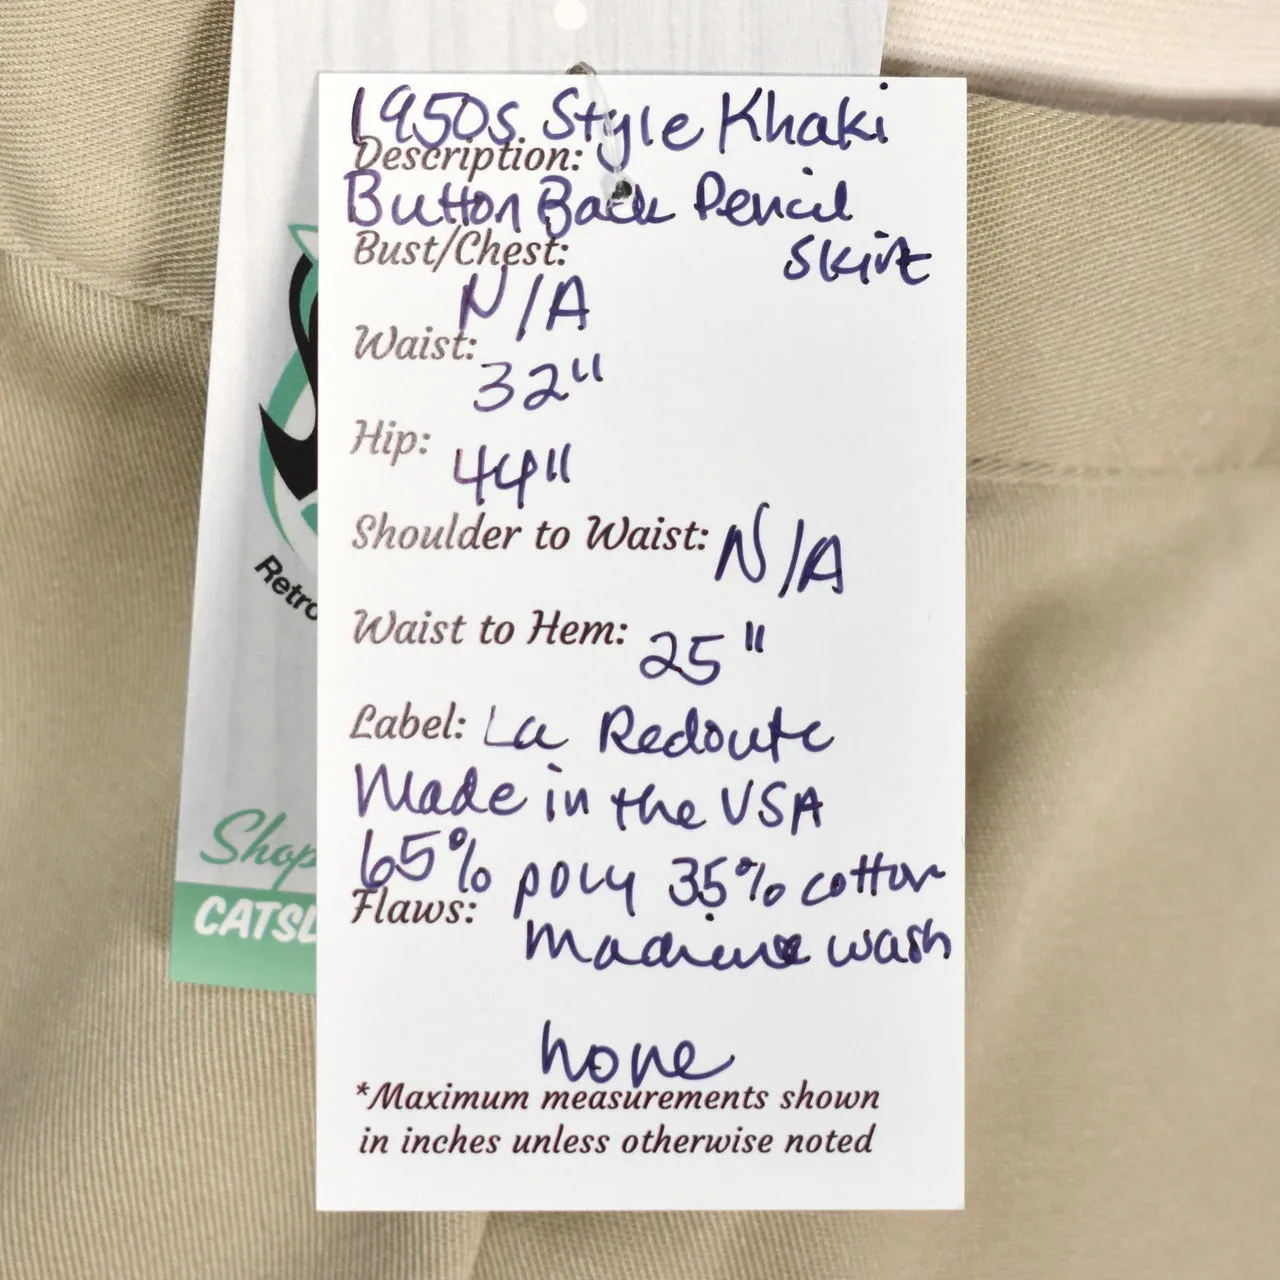 1950s Style Khaki
Description:
Button Back Pencil
Skirt
Bust/Chest:
N/A
Waist:
32"
Hip:
44"
Shoulder to Waist: N/A
Waist to Hem: 25"
Label: La Redoute
Made in the USA
65% poly 35% cotton
Flaws:
Machine wash
none
*Maximum measurements shown
in inches unless otherwise noted
Retro
Shop
CATSL